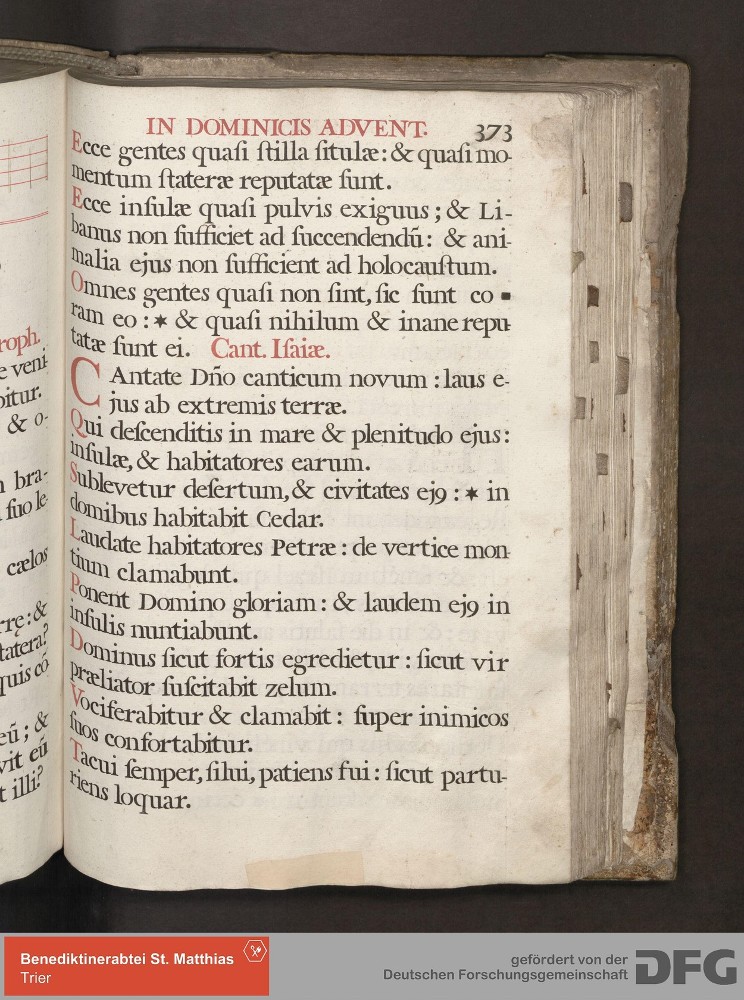 roph.
e veni
bitur.
& o-
bra-
ſuo le
cælos
rrę: &
tatera?
quis cō
eū; &
vit eū
t illi?
IN DOMINICIS ADVENT. 373
Ecce gentes quaſi ſtilla ſitulæ: & quaſi mo-
mentum ſtateræ reputatæ ſunt.
Ecce inſulæ quaſi pulvis exiguus; & Li-
banus non ſufficiet ad ſuccendendū: & ani-
malia ejus non ſufficient ad holocauſtum.
Omnes gentes quaſi non ſint, ſic ſunt co
ram eo: * & quaſi nihilum & inane repu-
tatæ ſunt ei. Cant. Iſaiæ.
CAntate Dño canticum novum: laus e-
jus ab extremis terræ.
Qui deſcenditis in mare & plenitudo ejus:
inſulæ, & habitatores earum.
Sublevetur deſertum, & civitates ejꝰ: * in
domibus habitabit Cedar.
Laudate habitatores Petræ: de vertice mon-
tium clamabunt.
Ponent Domino gloriam: & laudem ejꝰ in
inſulis nuntiabunt.
Dominus ſicut fortis egredietur: ſicut vir
præliator ſuſcitabit zelum.
Vociferabitur & clamabit: ſuper inimicos
ſuos confortabitur.
Tacui ſemper, ſilui, patiens fui: ſicut partu-
riens loquar.
Benediktinerabtei St. Matthias
Trier
gefördert von der
Deutschen Forschungsgemeinschaft
DFG